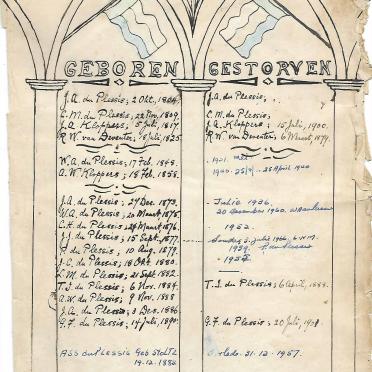 GEBOREN
J.A. du Plessis; 2 Okt. 1804.
C.M. du Plessis, 22 Nov. 1809.
J.A. Kloppers, 5 Juli, 1817.
R.W. van Deventer, 8 Julij, 1825.
W.A. du Plessis, 17 Feb. 1848.
A.W. Kloppers, 18 Feb. 1858.
J.A. du Plessis, 27 Dec. 1873.
W.A. du Plessis, 20 Maart 1875.
C.H. du Plessis, 29 Maart 1876.
J.J. du Plessis, 15 Sept. 1877.
du Plessis, 10 Aug. 1879.
J.C. du Plessis, 18 Okt. 1880.
L.M. du Plessis, 21 Sept. 1882.
T.I. du Plessis, 6 Nov. 1884.
A.W. du Plessis, 9 Nov. 1888
J.A. du Plessis, 3 Dec. 1886
G.F. du Plessis, 14 Julij, 1890.
ASS du Plessis Geb Stoltz
19.12.1886
GESTORVEN
J.A. du Plessis;
C.M. du Plessis;
J.A. Kloppers, 15 Julij, 1900.
R.W. van Deventer; 6 Maart, 1879.
1921. Mei
1940. 25 April 1940
Julie 1936.
20 Desember 1960.
1952.
Sondag 3 Julie 1966
1939.
1952
T.I. du Plessis; 6 April, 1888.
G.F. du Plessis; 20 Julij,
Oorlede 31.12.1957.